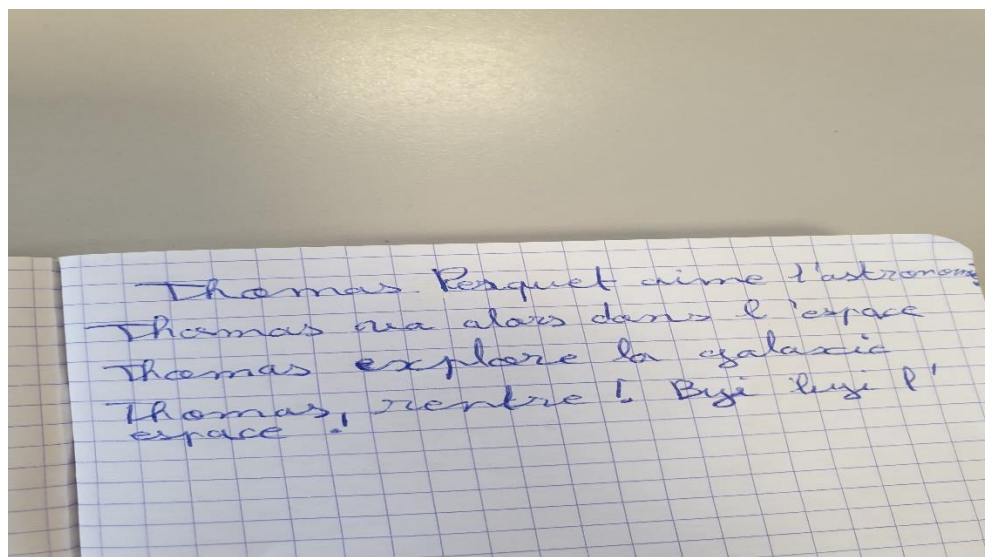 Thomas Pesquet aime l'astronomie
Thomas va alors dans l'espace
Thomas explore la galaxie
Thomas, rentre ! Byi byi l'
espace !